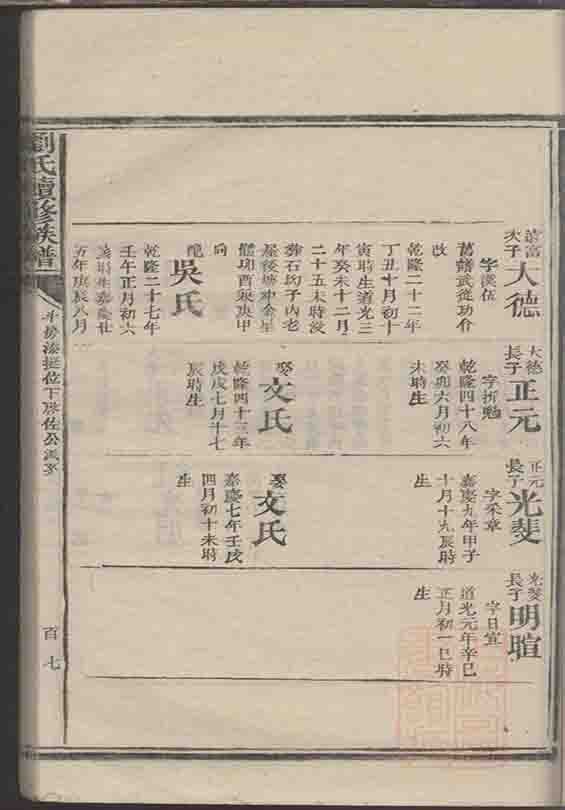 大子
大德
字漢佐
舊譜武從功介
改
乾隆二十二年
丁丑十月初十
寅時生道光三
年癸未十二月
二十五未時沒
葬石均子內老
屋後
酉
向
配
吳氏
乾隆二十七年
壬午正月初六
時生嘉慶廿
五年庚辰八月
大德
長子
正元
字折勉
乾隆四十八年
癸卯六月初六
未時生
娶
文氏
乾隆四十三年
戊戌七月十七
辰時生
正元
長子
光斐
字采章
嘉慶九年甲子
十月十九辰時
生
娶
文氏
嘉慶七年壬戌
四月初十未時
生
光斐
長子
明暄
字日宣
道光元年辛巳
正月初一巳時
生
劉氏續修族譜
百七